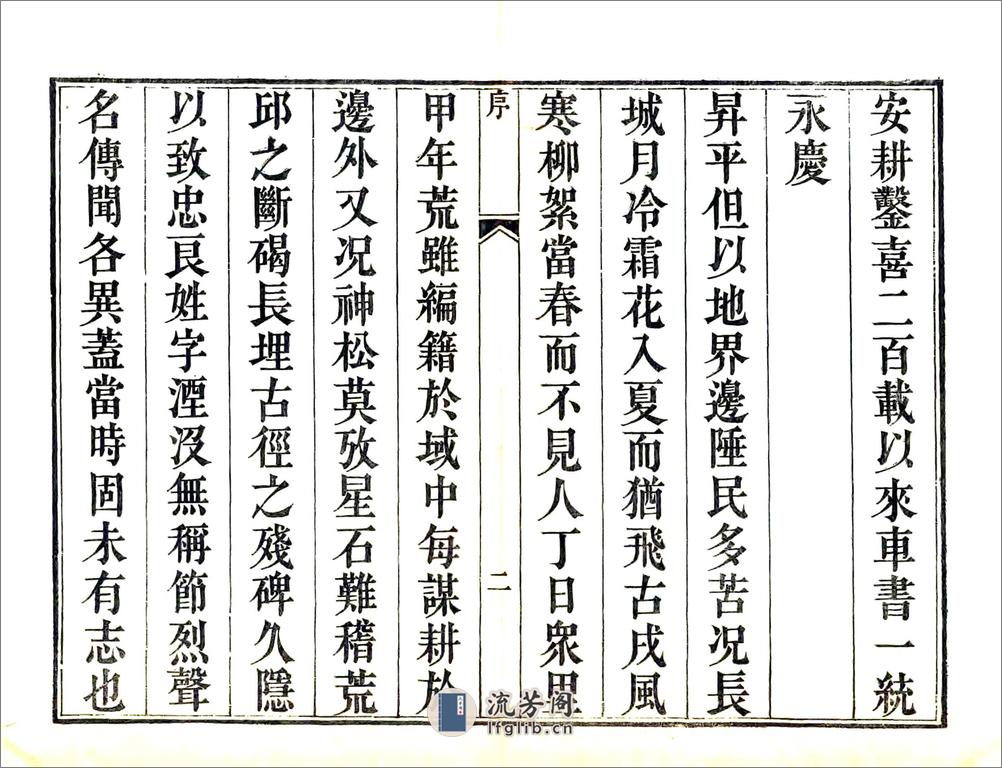 安耕鑿喜二百載以來車書一統
永慶
昇平但以地界邊陲民多苦况長
城月冷霜花入夏而猶飛古戍風
寒柳絮當春而不見人丁日衆思
序
二
甲年荒雖編籍於域中每謀耕於
邊外又况神松莫攷星石難稽荒
邱之斷碣長埋古徑之殘碑久隱
以致忠良姓字湮沒無稱節烈聲
名傳聞各異蓋當時固未有志也
流芳阁
lfglib.cn